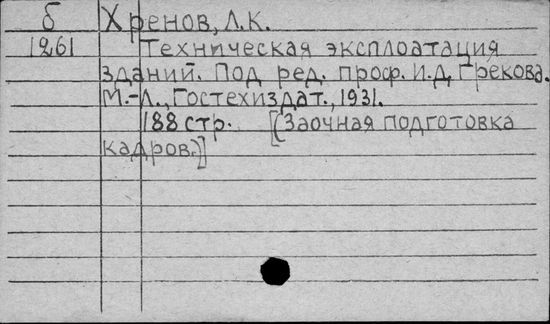 б Хренов, Л.К.
1261 Техническая эксплоатация
зданий. Под ред. проф. И.Д. Грекова.
М.-Л., Гостехиздат., 1931.
188 стр. [(Заочная подготовка
кадров.)]